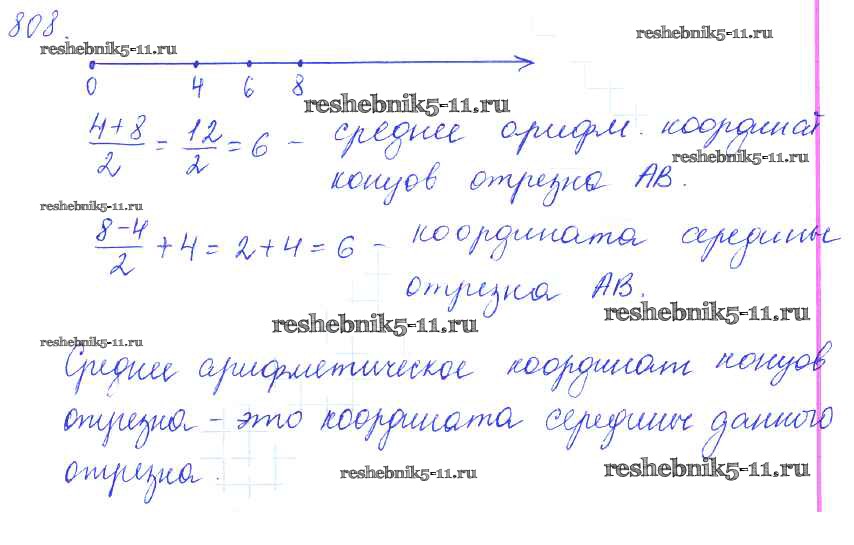 808.
reshebnik5-11.ru
reshebnik5-11.ru
0 4 6 8
reshebnik5-11.ru
4+8/2 = 12/2 = 6 – среднее арифм. координат
reshebnik5-11.ru
концов отрезка АВ.
reshebnik5-11.ru
8-4/2 + 4 = 2 + 4 = 6 – координата середины
отрезка АВ.
reshebnik5-11.ru
reshebnik5-11.ru
reshebnik5-11.ru
Среднее арифметическое координат концов
отрезка – это координата середины данного
отрезка.
reshebnik5-11.ru
reshebnik5-11.ru